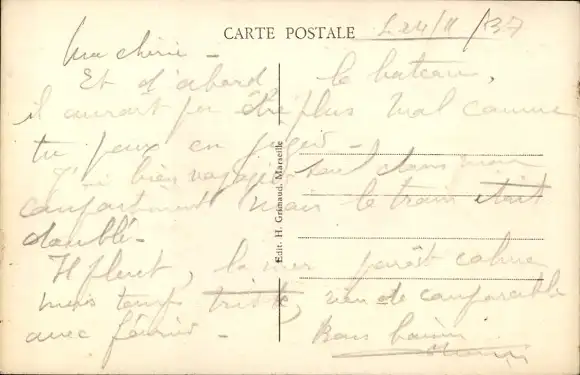 CARTE POSTALE
L 24/11/37
Ma chérie -
Et d'abord le bateau,
il aurait pu être plus mal comme
tu peux en juger -
J'ai bien voyagé seul dans mon
compartiment mais le train était
doublé -
Il pleut, la mer paraît calme
mais temps triste, rien de comparable
avec février -
Bons baisers
Edit. H. Grimaud, Marseille